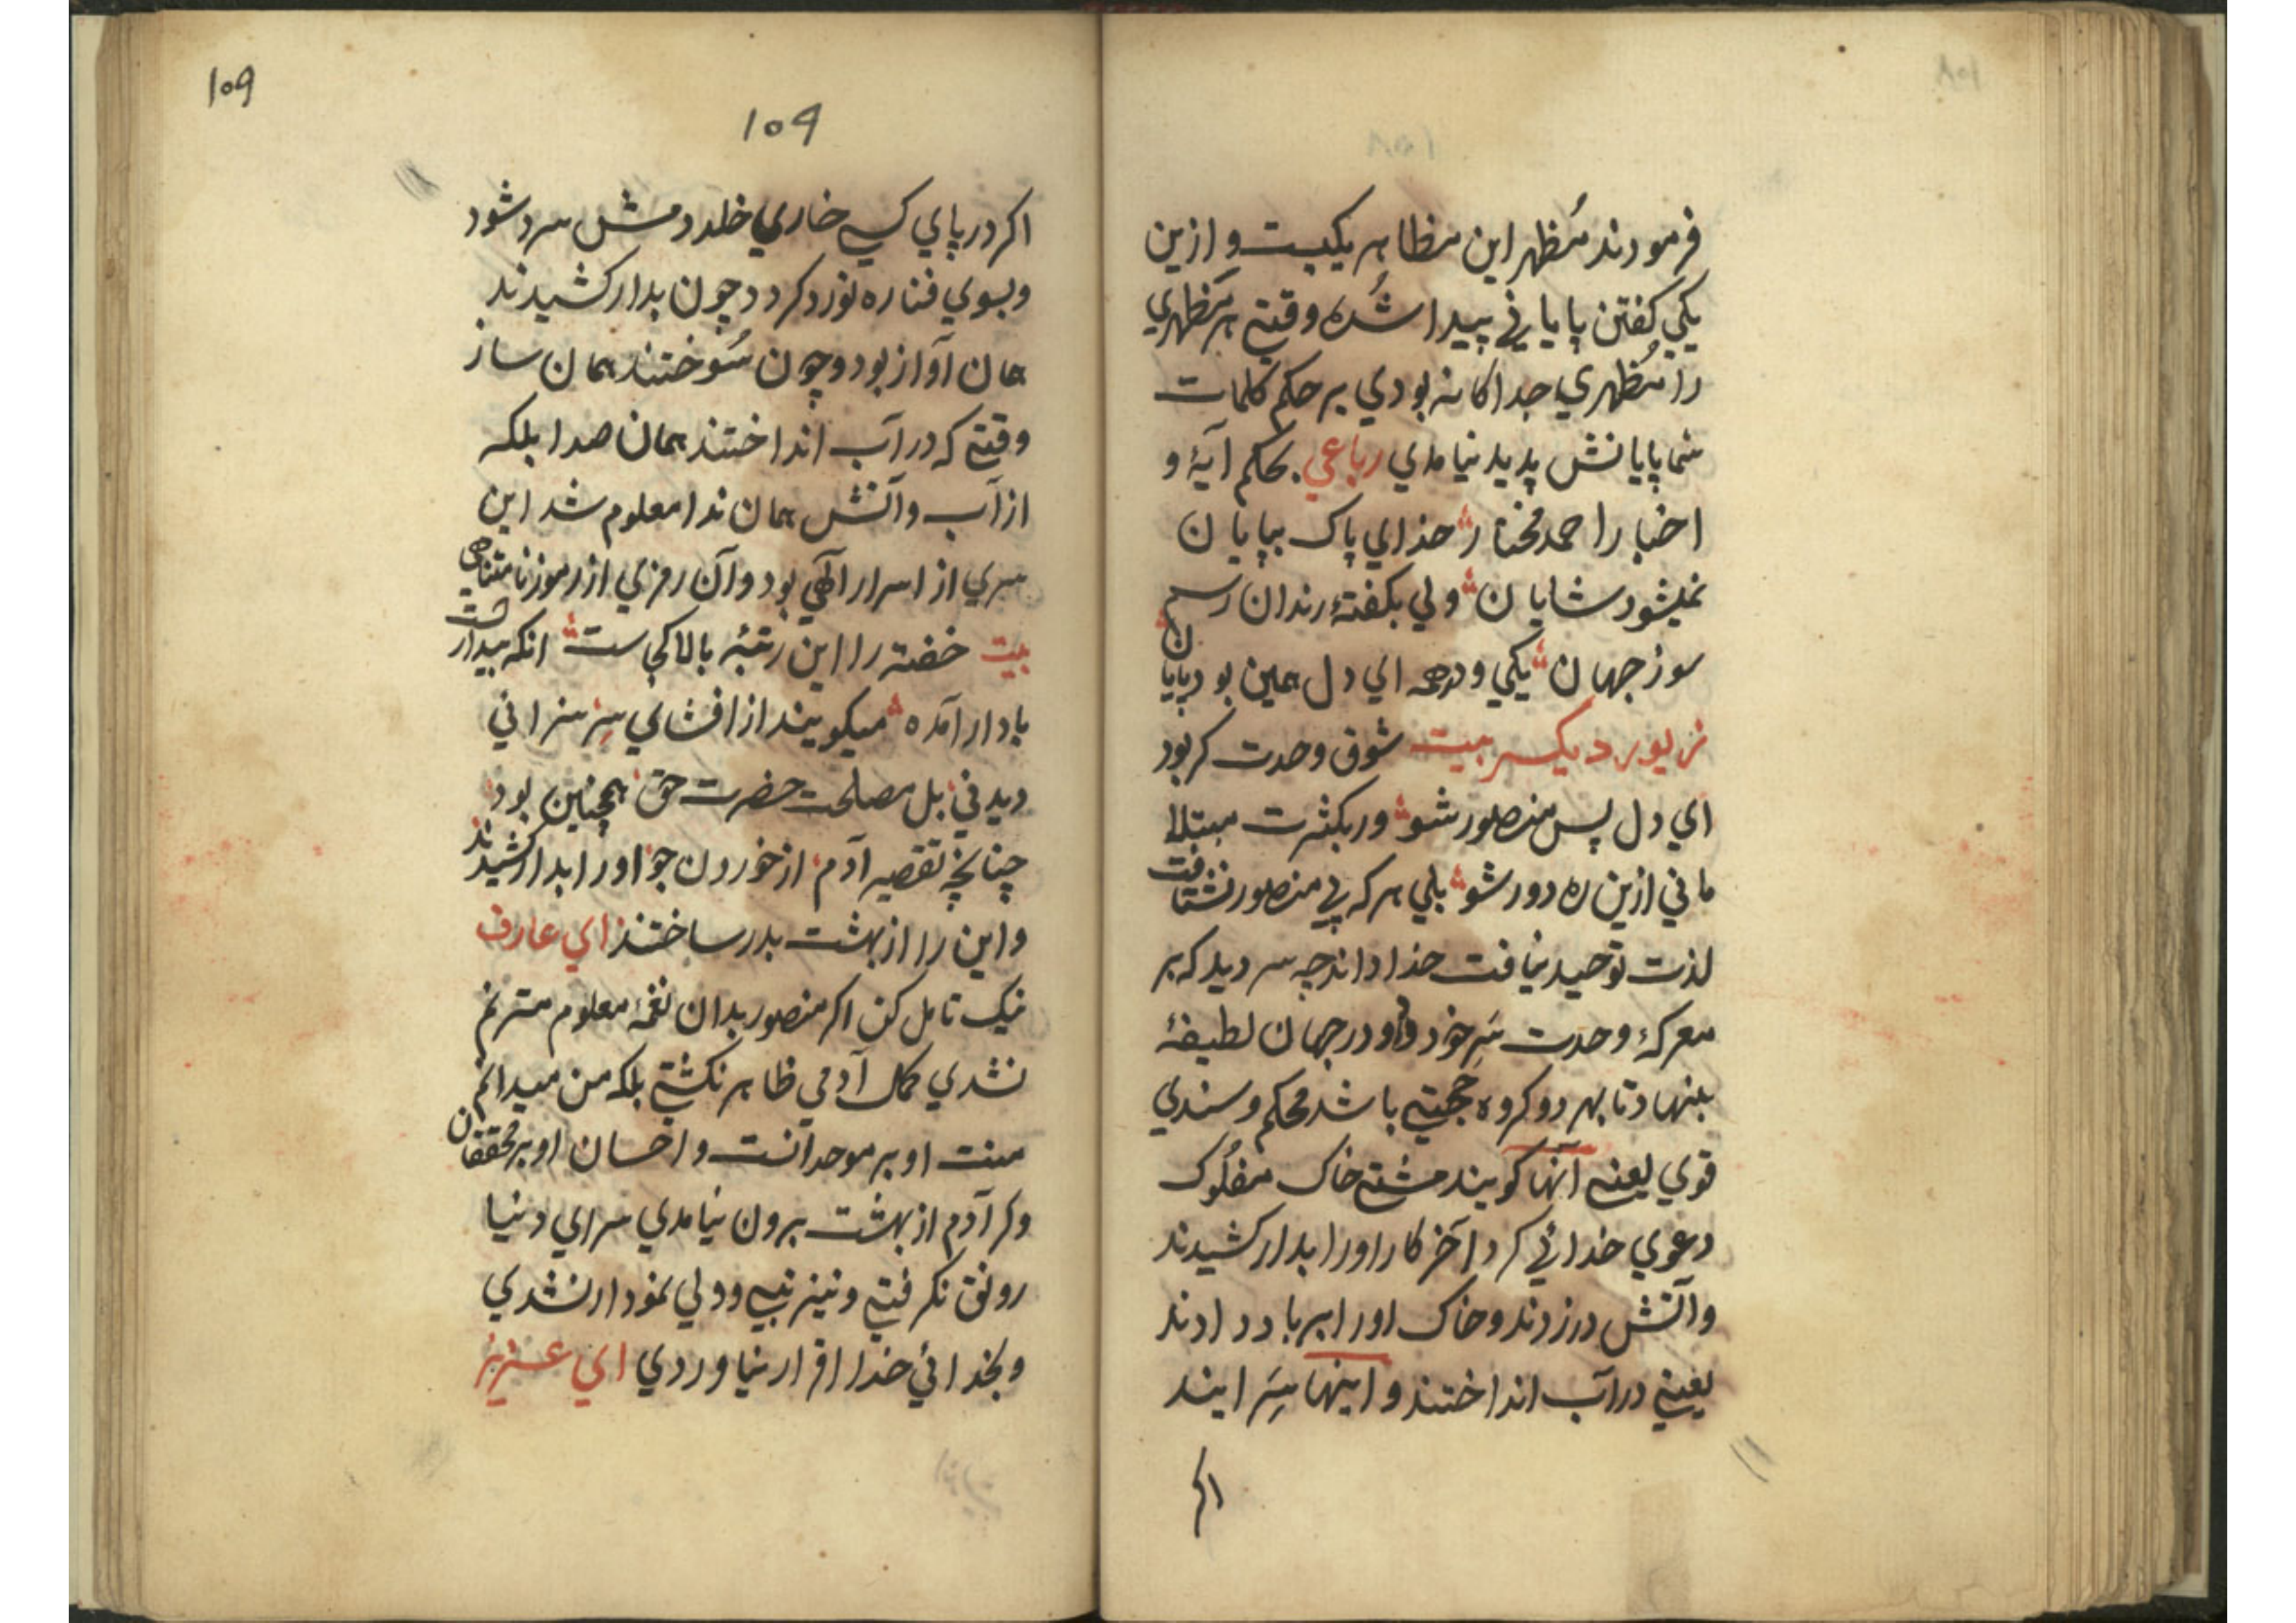 فرمودند مُظهر این مظاهر یکیست و ازین
یکی گفتن پایانی پیدا شُده وقتی هر مَظهری
را مُظهری جداکانه بودی بر حکم کلمات
شما پایانش پدید نیامدی رباعی بحکم آیهٔ و
اخبار احمد مختار خدای پاک بپایان
نمیشود شایان ولی بکفتهٔ رندان رسم
سوز جهان یکی و در همه ای دل همین بود پایان
زیور دیگر بیت شوق وحدت کر بود
ای دل پس منصور شو ور بکثرت مبتلا
مانی ازین ره دور شو بلی هر که پی منصور نشتافت
لذت توحید نیافت خدا داند چه سر دید که بر
معرکهٔ وحدت سَرِ خود داد و در جهان لطیفهٔ
بنهاد تا بهر دو کروه حجتی باشد محکم و سندی
قوی یعنی آنها کویند مشتی خاک مفلُوک
دعوی خدائی کرد آخر کار او را بدار کشیدند
و آتش در زدند و خاک او را بر باد دادند
یعنی در آب انداختند و اینها سَرِ ایند
اکر
109
109
اکر در پای کسی خاری خلد دمش سرد شود
و بسوی فنا ره نورد کردد چون بدار کشیدند
همان آواز بود و چون سُوختند همان ساز
وقتی که در آب انداختند همان صدا بلکه
از آب و آتش همان ندا معلوم شد این
سری از اسرار الهی بود و آن رمزی از رموز نامتناهی
بیت خفته را این رتبهٔ بالا کجاست انکه بیدارست
با دار آمده میکویند از افشای سِرّ سزا نی
دید نی بل مصلحت حضرت حق همچنین بود
چنانچه تقصیر آدم از خوردن جو او را بدار کشیدند
و این را از بهشت بدر ساختند ای عارف
نیک تامل کن اکر منصور بدان نغمهٔ معلوم مترنم
نشدی کمال آدمی ظاهر نکشتی بلکه من میدانم
منت او بر موحدانست و احسان او بر محققان
و کر آدم از بهشت برون نیامدی سرای دنیا
رونق نکرفتی و نیز نبی و ولی نمودار نشدی
و بخدائی خدا اقرار نیاوردی ای عزیز